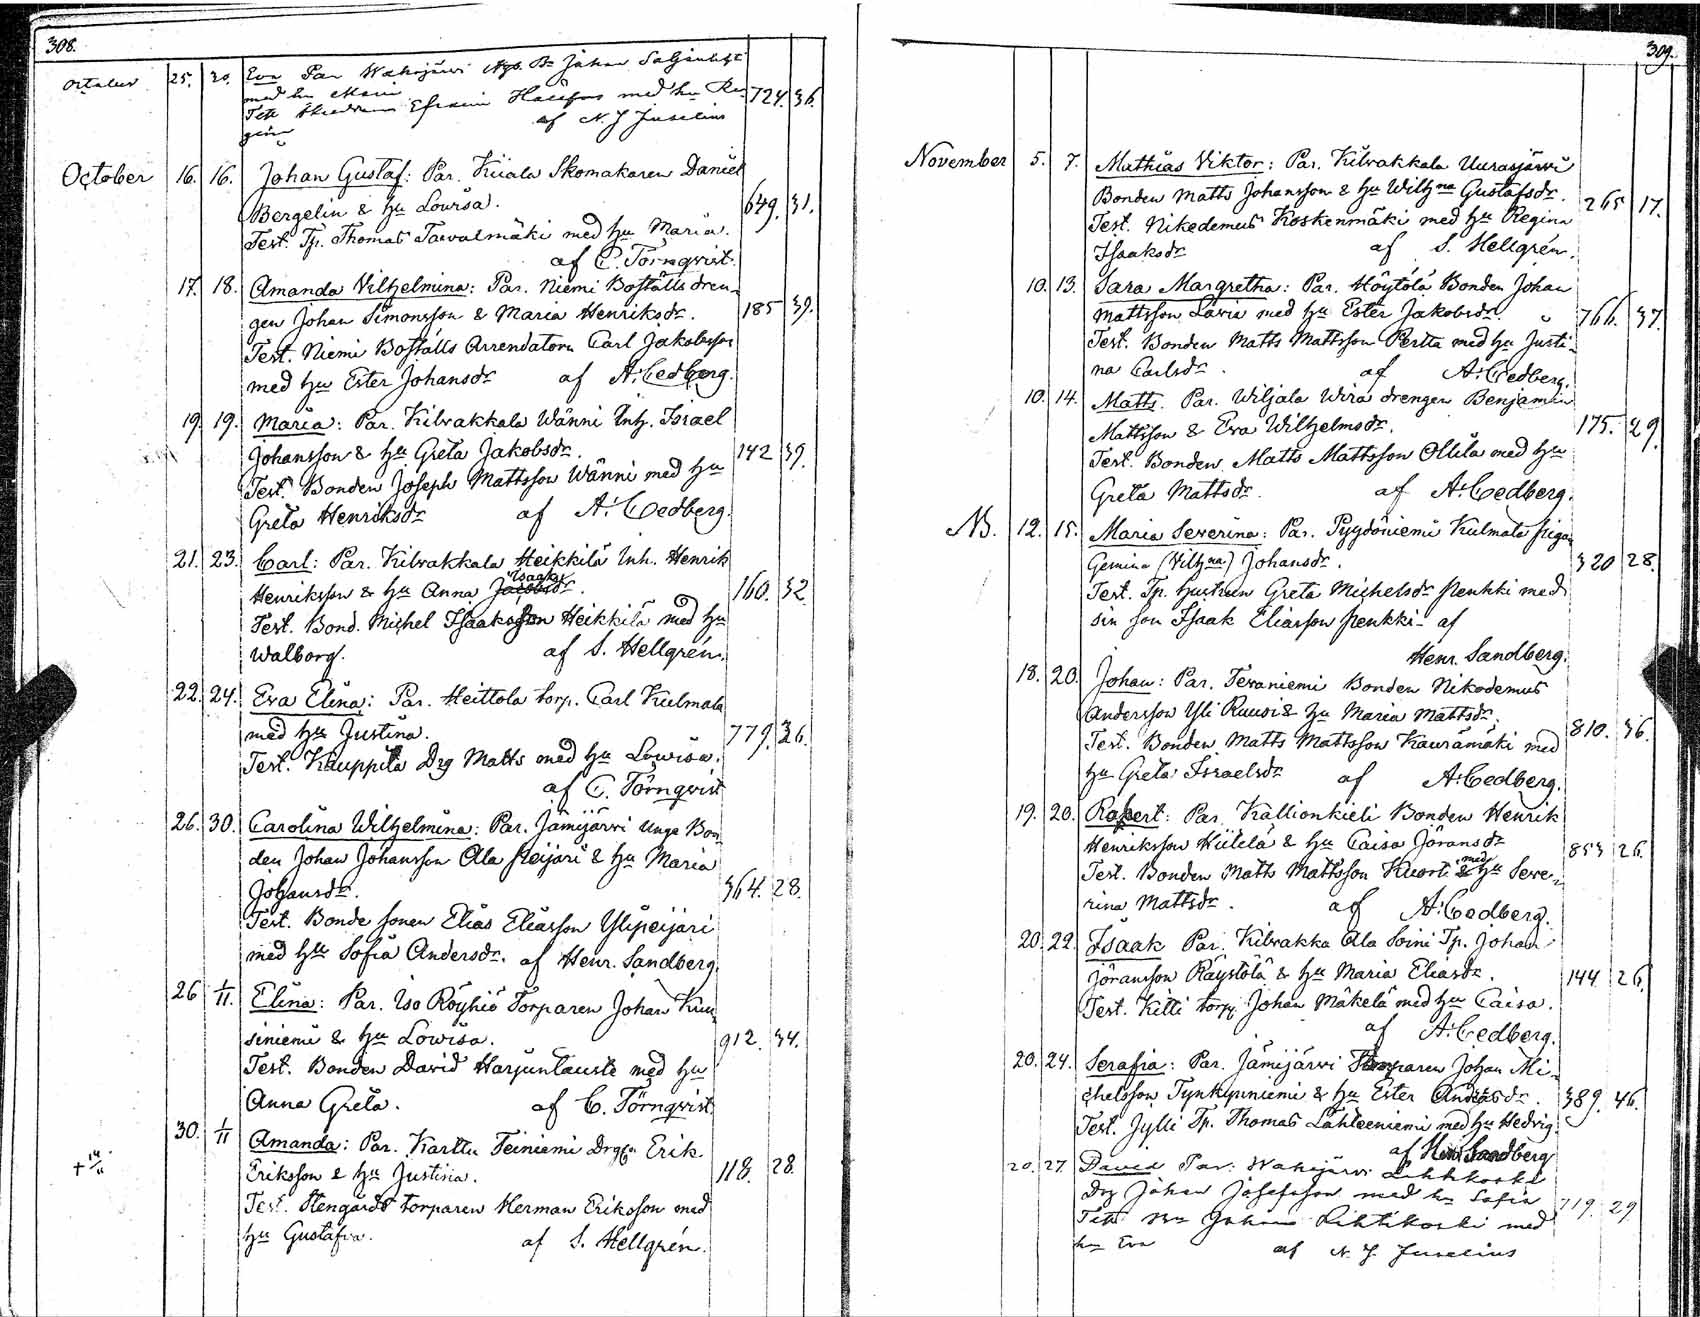 308.
October 25. 20. Eva Par Wahojärvi Nyb. Bn Johan
med hu Maria
Test Efraim med hu Re- 724. 36.
gina af N. J. Juselius
October 16. 16. Johan Gustaf: Par. Kiiala Skomakaren Daniel
Bergelin & hu Lovisa. 649. 31.
Test. Tp. Thomas Tawalmäki med hu Maria.
af C. Törnqvist.
17. 18. Amanda Vilhelmina: Par. Niemi Boställs dren-
gen Johan Simonsson & Maria Henriksdr. 185 39.
Test. Niemi Boställs Arrendatorn Carl Jakobsson
med hu Ester Johansdr af A. Cedberg.
19. 19. Maria: Par. Kilvakkala Wänni Inh. Israel
Johansson & hu Greta Jakobsdr. 142 39.
Test. Bonden Joseph Mattsson Wänni med hu
Greta Henriksdr af A. Cedberg.
21. 23. Carl: Par. Kilvakkala Heikkilä Inh. Henrik
Isaaks
Henriksson & hu Anna Jacobsdr. 160. 32.
Test. Bond. Michel Isaaksson Heikkilä med hu
Walborg. af S. Hellgrén.
22. 24. Eva Elina: Par. Heittola torp. Carl Kulmala
med hu Justina. 779. 26.
Test. Kauppila Drg Matts med hu Lowisa.
af C. Törnqvist
26. 30. Carolina Wilhelmina: Par. Jämijärvi unge Bon-
den Johan Johansson Ala Peijari & hu Maria
Johansdr. 364. 28.
Test. Bonde sonen Elias Eliasson Ylipeijari
med hu Sofia Andersdr. af Henr. Sandberg.
26 1/11. Elina: Par. Iso Röyhiö Torparen Johan Kuu-
siniemi & hu Lowisa. 912. 34.
Test. Bonden David Harjuntausta med hu
Anna Greta. af C. Törnqvist
30. 1/11 Amanda: Par. Karttu Teiniemi Drgen Erik
Eriksson & hu Justina. 118. 28.
Test. Stengårds torparen Herman Eriksson med
hu Gustafva. af S. Hellgrén.
309.
November 5. 7. Mathias Viktor: Par. Kilvakkala Uurasjärvi
Bonden Matts Johansson & hu Wilhna Gustafsdr. 265 17.
Test. Nikodemus Koskenmäki med hu Regina
Isaaksdr af S. Hellgrén.
10. 13. Sara Margretha: Par. Höytölä Bonden Johan
Mattsson Lavia med hu Ester Jakobsdr. 766. 37.
Test. Bonden Matts Mattsson Pertta med hu Justi-
na Carlsdr. af A. Cedberg.
10. 14. Matts. Par. Wiljala Wira drengen Benjamin
Mattsson & Eva Wilhelmsdr. 175. 29.
Test. Bonden Matts Mattsson Ollila med hu
Greta Mattsdr. af A. Cedberg.
NB. 12. 15. Maria Severina: Par. Pyydöniemi Kulmala pigan
Gemina (Vilhna.) Johansdr. 320 28.
Test. Tp. hustrun Greta Michelsdr Penkki med
sin son Isaak Eliasson Penkki af
Henr. Sandberg.
18. 20. Johan: Par. Tevaniemi Bonden Nikodemus
Andersson Yli Ruusi & hu Maria Mattsdr. 810. 36.
Test. Bonden Matts Mattsson Kauramäki med
hu Greta Israelsdr af A. Cedberg.
19. 20. Robert: Par. Kallionkieli Bonden Henrik
Henriksson Hiitelä & hu Caisa Jöransdr 853 26.
med
Test. Bonden Matts Mattsson Kuorti & hu Seve-
rina Mattsdr. af A. Cedberg.
20. 22. Isaak Par. Kilvakka Ala Soini Tp. Johan
Jöransson Räystölä & hu Maria Eliasdr. 144 26.
Test. Kitti torp. Johan Mäkelä med hu Caisa.
af A. Cedberg.
20. 24. Serafia: Par. Jämijärvi Torparen Johan Mi-
chelsson Tynkyniemi & hu Ester Andersdr. 389. 46.
Test. Jylli Tp. Thomas Lähteeniemi med hu Hedvig.
af Henr. Sandberg
20. 27. David Par: Wahojärvi Lihtikoski
Drg Johan Josefsson med hu Sofia 719. 29
Test Bn Johan Rihtikoski med
hu Eva af N. J. Juselius